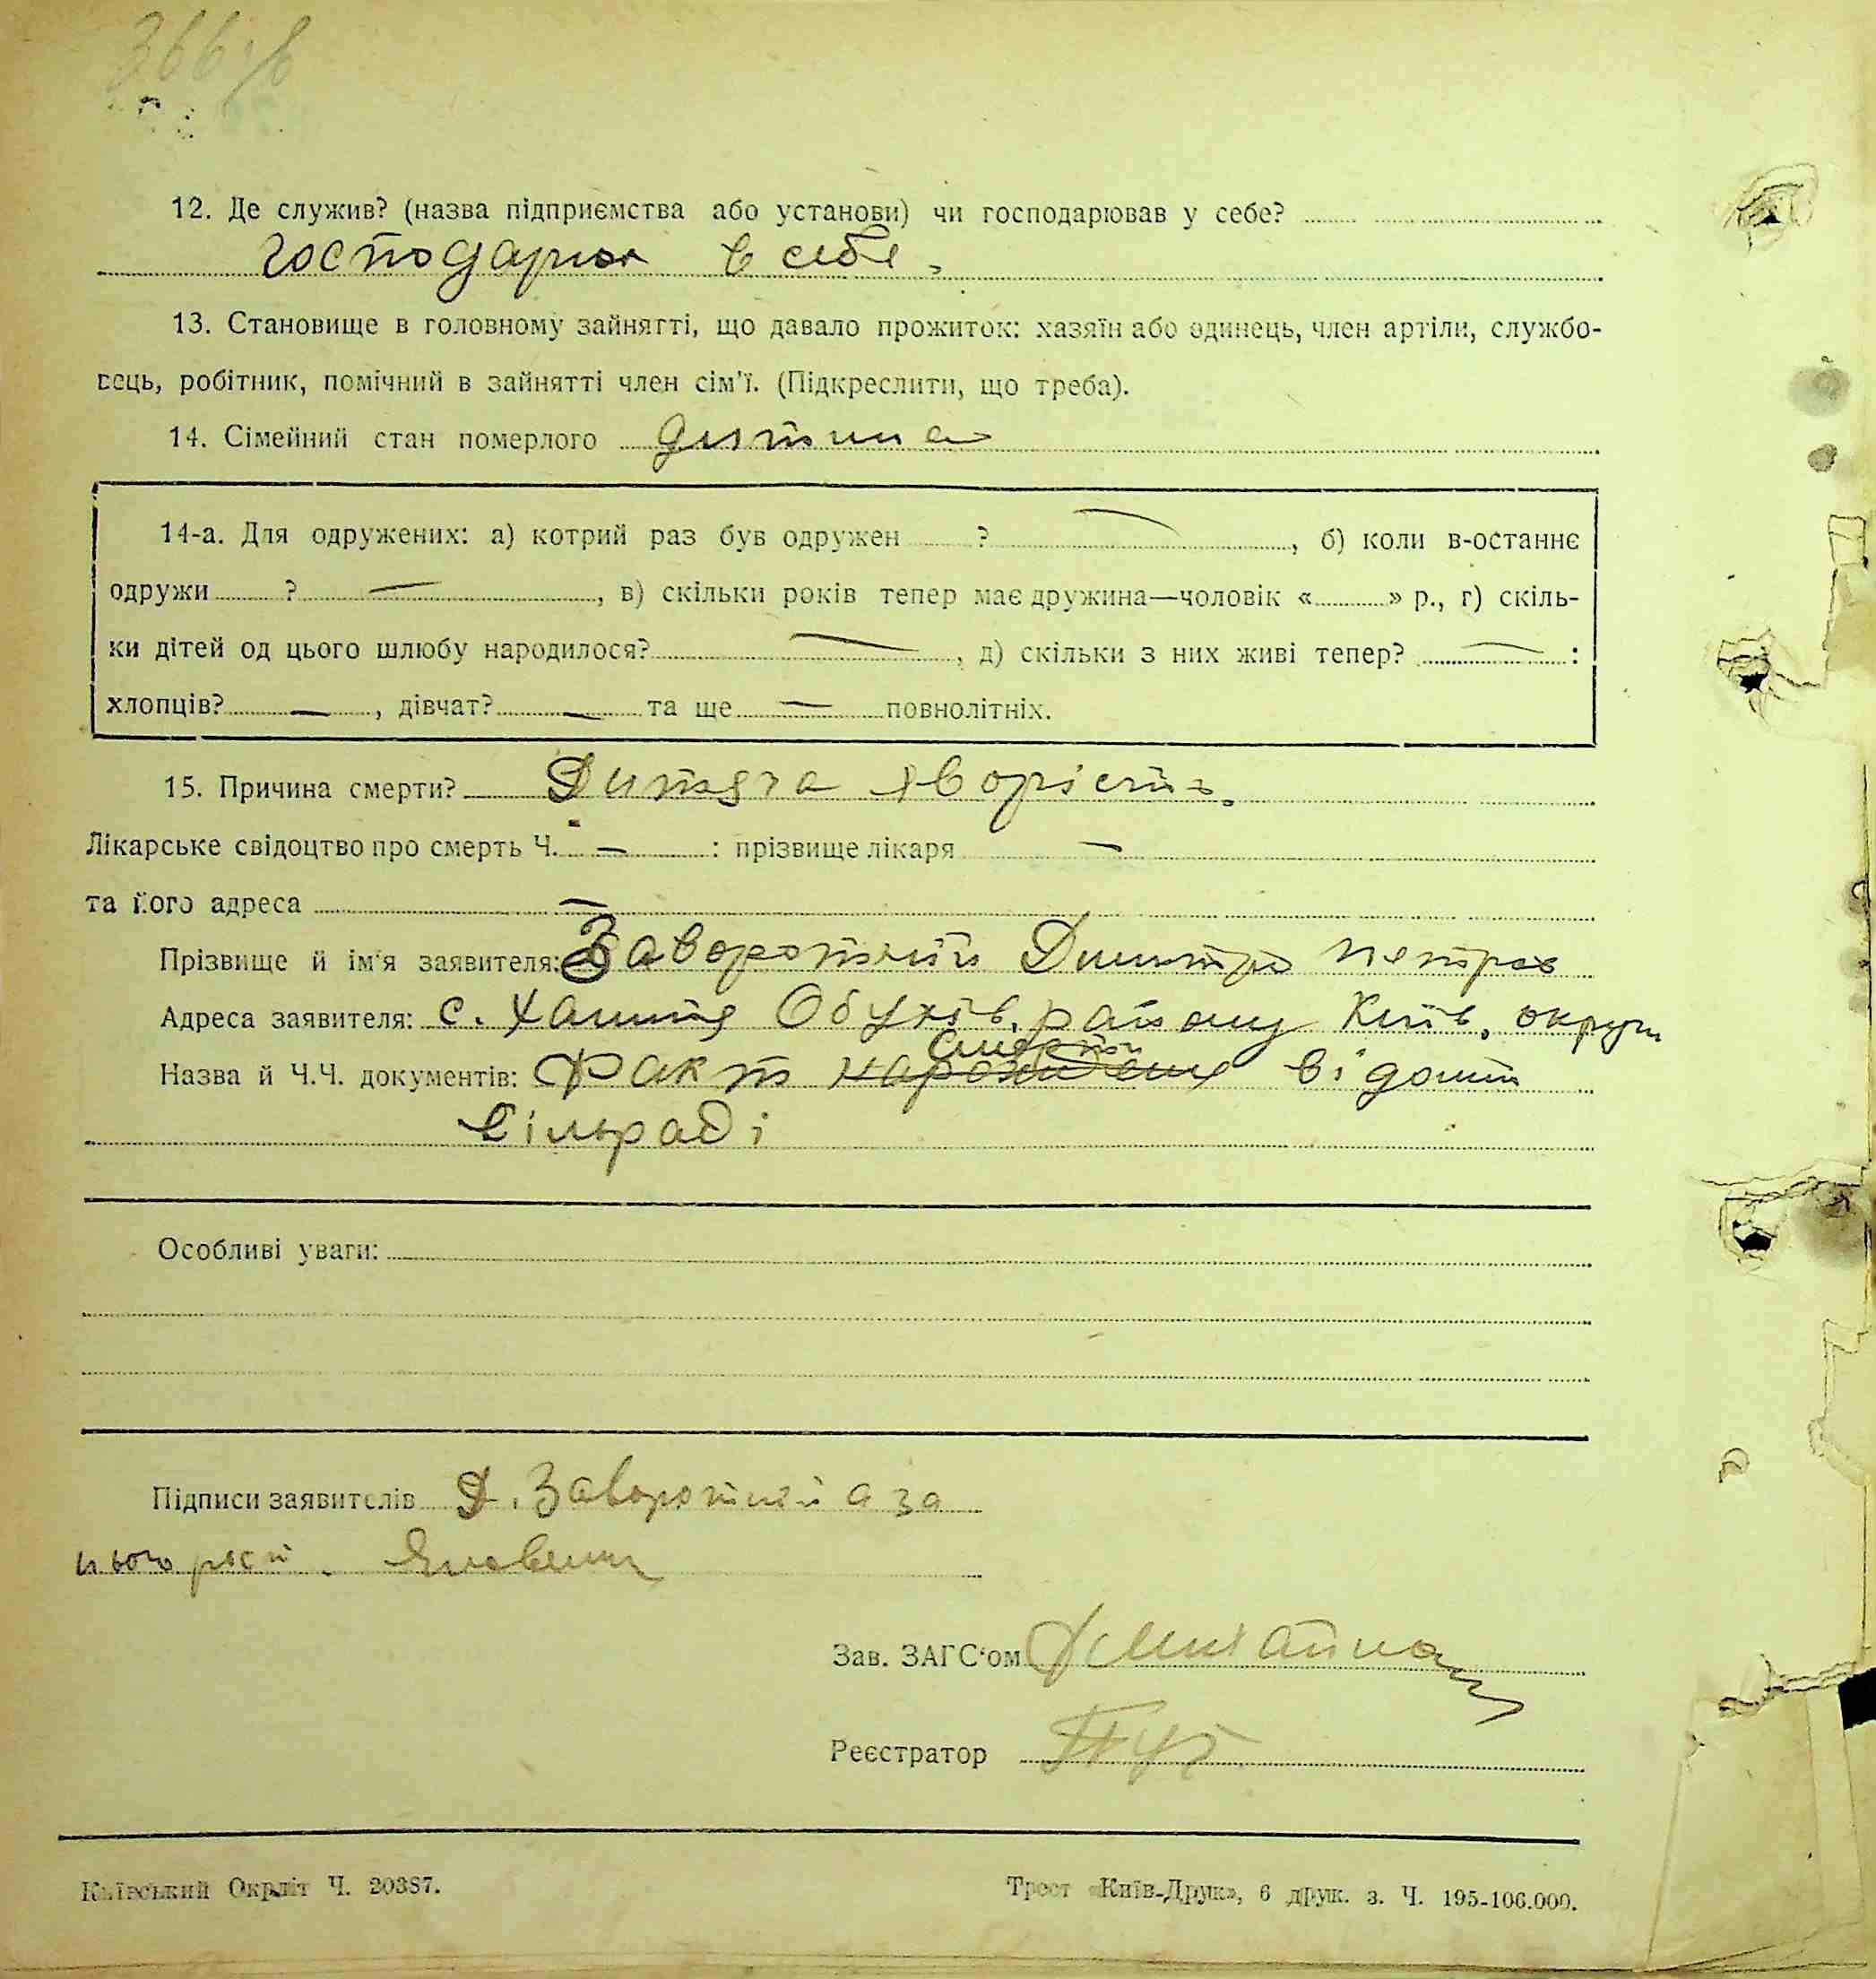 366 в
12. Де служив? (назва підприємства або установи) чи господарював у себе?
господарюв в себе.
13. Становище в головному зайнятті, що давало прожиток: хазяїн або одинець, член артіли, службо-
вець, робітник, помічний в зайнятті член сім'ї. (Підкреслити, що треба).
14. Сімейний стан померлого дитина
14-а. Для одружених: а) котрий раз був одружен ? —, б) коли в-останнє
одружи ? —, в) скільки років тепер має дружина—чоловік « » р., г) скіль-
ки дітей од цього шлюбу народилося? —, д) скільки з них живі тепер? — :
хлопців? —, дівчат? — та ще — повнолітніх.
15. Причина смерти? Дитяча хворість.
Лікарське свідоцтво про смерть Ч. — : прізвище лікаря —
та його адреса —
Прізвище й ім'я заявителя: Заворотній Дмитро Петров
Адреса заявителя: с. Обухів. району Київ. округи
смерти
Назва й Ч.Ч. документів: Факт народження відомий
Сільраді
Особливі уваги:
Підписи заявителів Д. Заворотній а за
нього росп.
Зав. ЗАГС'ом
Реєстратор
Київський Окрліт Ч. 20387.
Трест «Київ-Друк», 6 друк. з. Ч. 195-106.000.